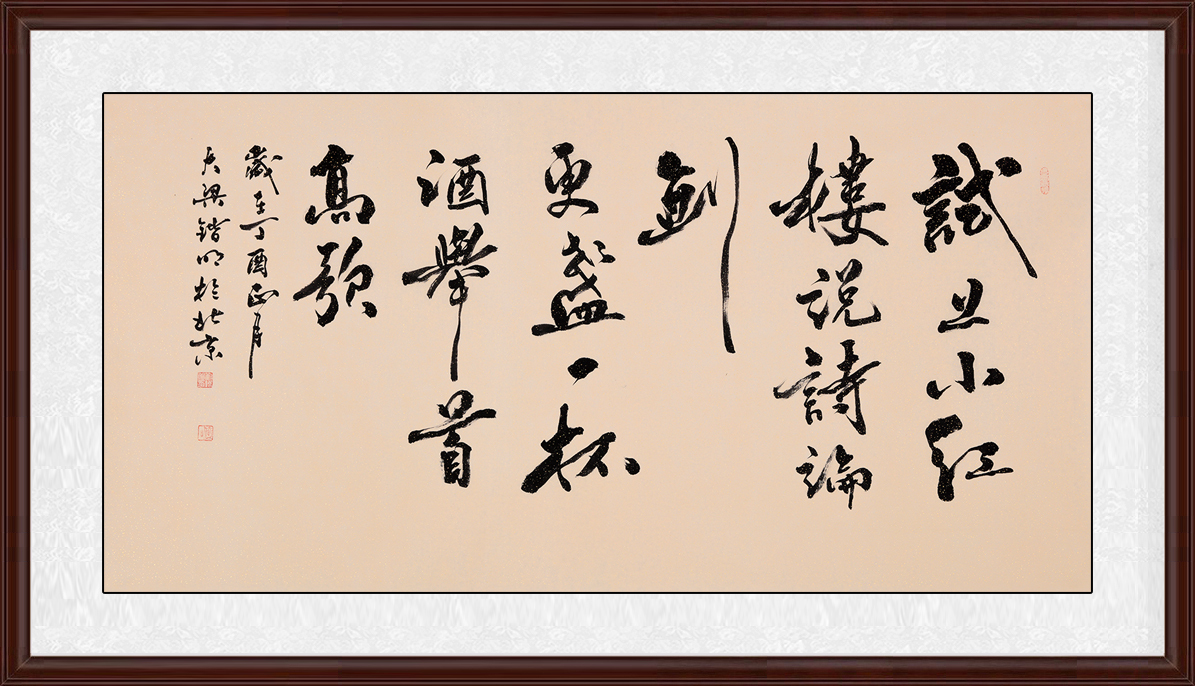 試上小紅
樓說詩論
劍
更盡一杯
酒舉首
高歌
歲在丁酉正月
大梁鍇明於北京